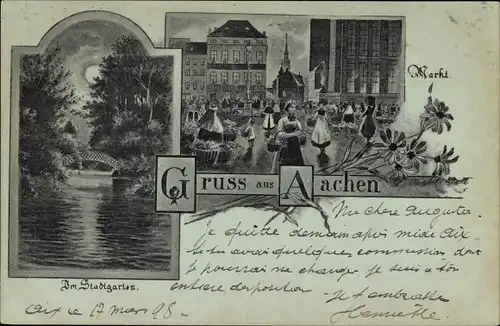 Markt.
Gruss aus Aachen
Im Stadtgarten.
Ma chère Augusta
je quitte demain après midi Aix
Si tu avais quelque commission dont
je pourrais me charger je suis à ton
entière disposition
Je t'embrasse
Henriette
Aix le 17 mars 98.